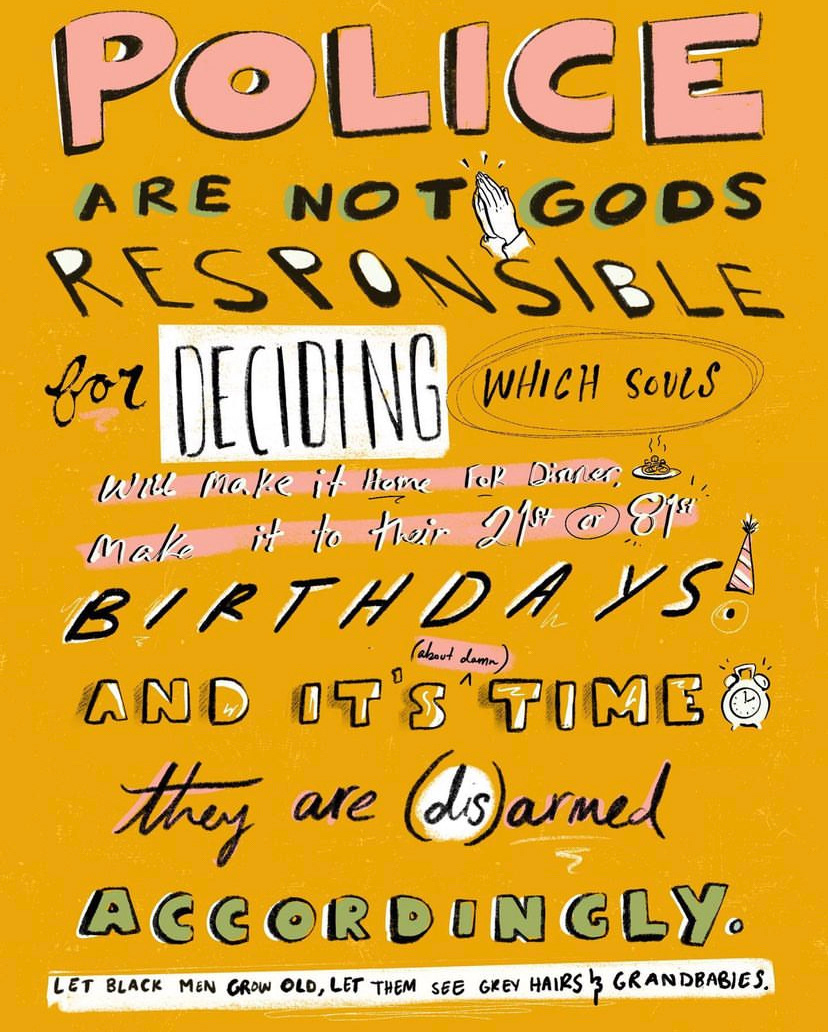 POLICE
ARE NOT GODS
RESPONSIBLE
for DECIDING WHICH SOULS
Will Make it Home For Dinner,
Make it to their 21st or 81st
BIRTHDAYS.
(about damn)
AND IT'S ^ TIME
they are (dis)armed
ACCORDINGLY.
LET BLACK MEN GROW OLD, LET THEM SEE GREY HAIRS & GRANDBABIES.